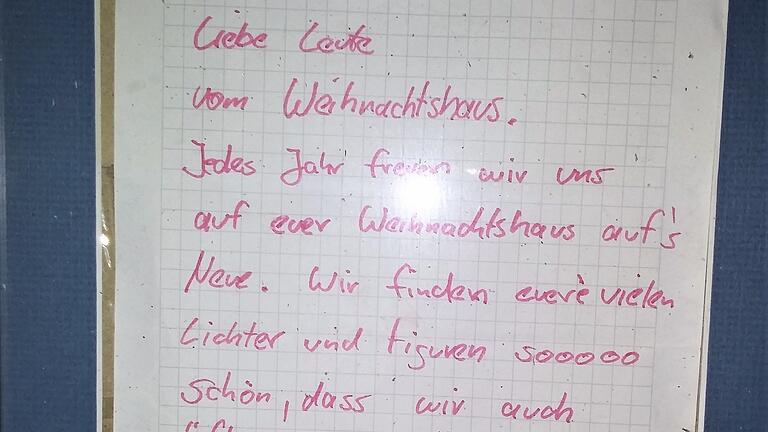 Liebe Leute
vom Weihnachtshaus.
Jedes Jahr freuen wir uns
auf euer Weihnachtshaus auf's
Neue. Wir finden euere vielen
Lichter und Figuren sooooo
schön, dass wir auch